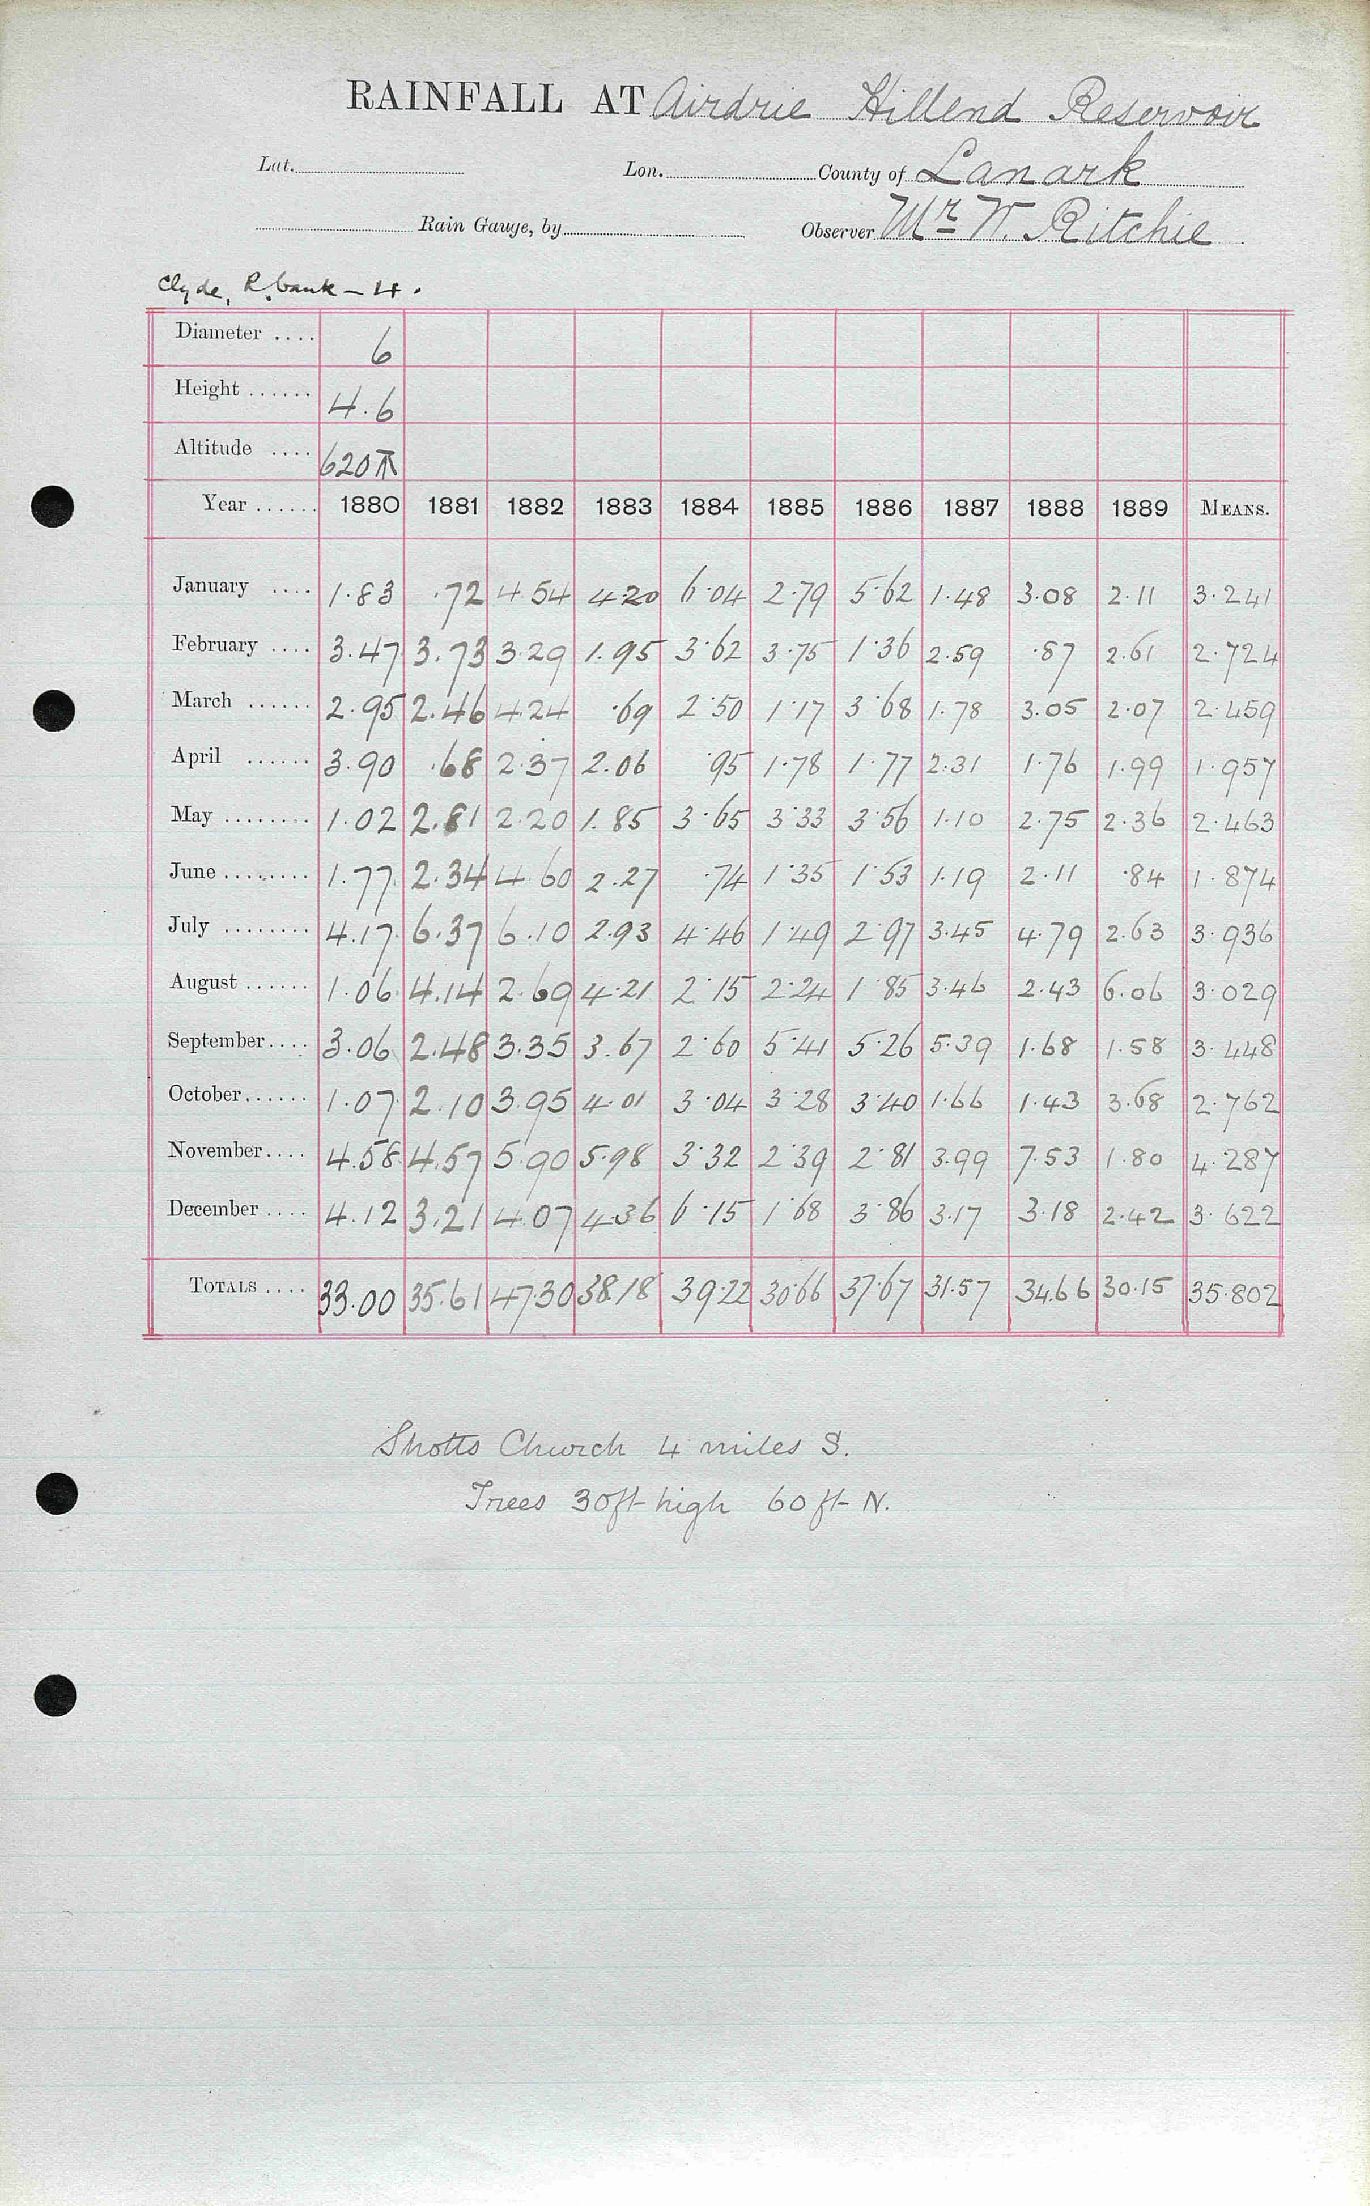 RAINFALL AT Airdrie Hillend Reservoir
Lat. Lon. County of Lanark
Rain Gauge, by Observer Mr W. Ritchie
Clyde, R. bank - 4.
Diameter .... 6
Height ...... 4.6
Altitude .... 620 ft
Year ...... 1880 1881 1882 1883 1884 1885 1886 1887 1888 1889 MEANS.
January .... 1.83 .72 4.54 4.20 6.04 2.79 5.62 1.48 3.08 2.11 3.241
February .... 3.47 3.73 3.29 1.95 3.62 3.75 1.36 2.59 .87 2.61 2.724
March ...... 2.95 2.46 4.24 .69 2.50 1.17 3.68 1.78 3.05 2.07 2.459
April ...... 3.90 .68 2.37 2.06 .95 1.78 1.77 2.31 1.76 1.99 1.957
May ........ 1.02 2.81 2.20 1.85 3.65 3.33 3.56 1.10 2.75 2.36 2.463
June ........ 1.77 2.34 4.60 2.27 .74 1.35 1.53 1.19 2.11 .84 1.874
July ........ 4.17 6.37 6.10 2.93 4.46 1.49 2.97 3.45 4.79 2.63 3.936
August ...... 1.06 4.14 2.69 4.21 2.15 2.24 1.85 3.46 2.43 6.06 3.029
September.... 3.06 2.48 3.35 3.67 2.60 5.41 5.26 5.39 1.68 1.58 3.448
October...... 1.07 2.10 3.95 4.01 3.04 3.28 3.40 1.66 1.43 3.68 2.762
November.... 4.58 4.57 5.90 5.98 3.32 2.39 2.81 3.99 7.53 1.80 4.287
December .... 4.12 3.21 4.07 4.36 6.15 1.68 3.86 3.17 3.18 2.42 3.622
TOTALS .... 33.00 35.61 47.30 38.18 39.22 30.66 37.67 31.57 34.66 30.15 35.802
Shotts Church 4 miles S.
Trees 30ft high 60 ft N.